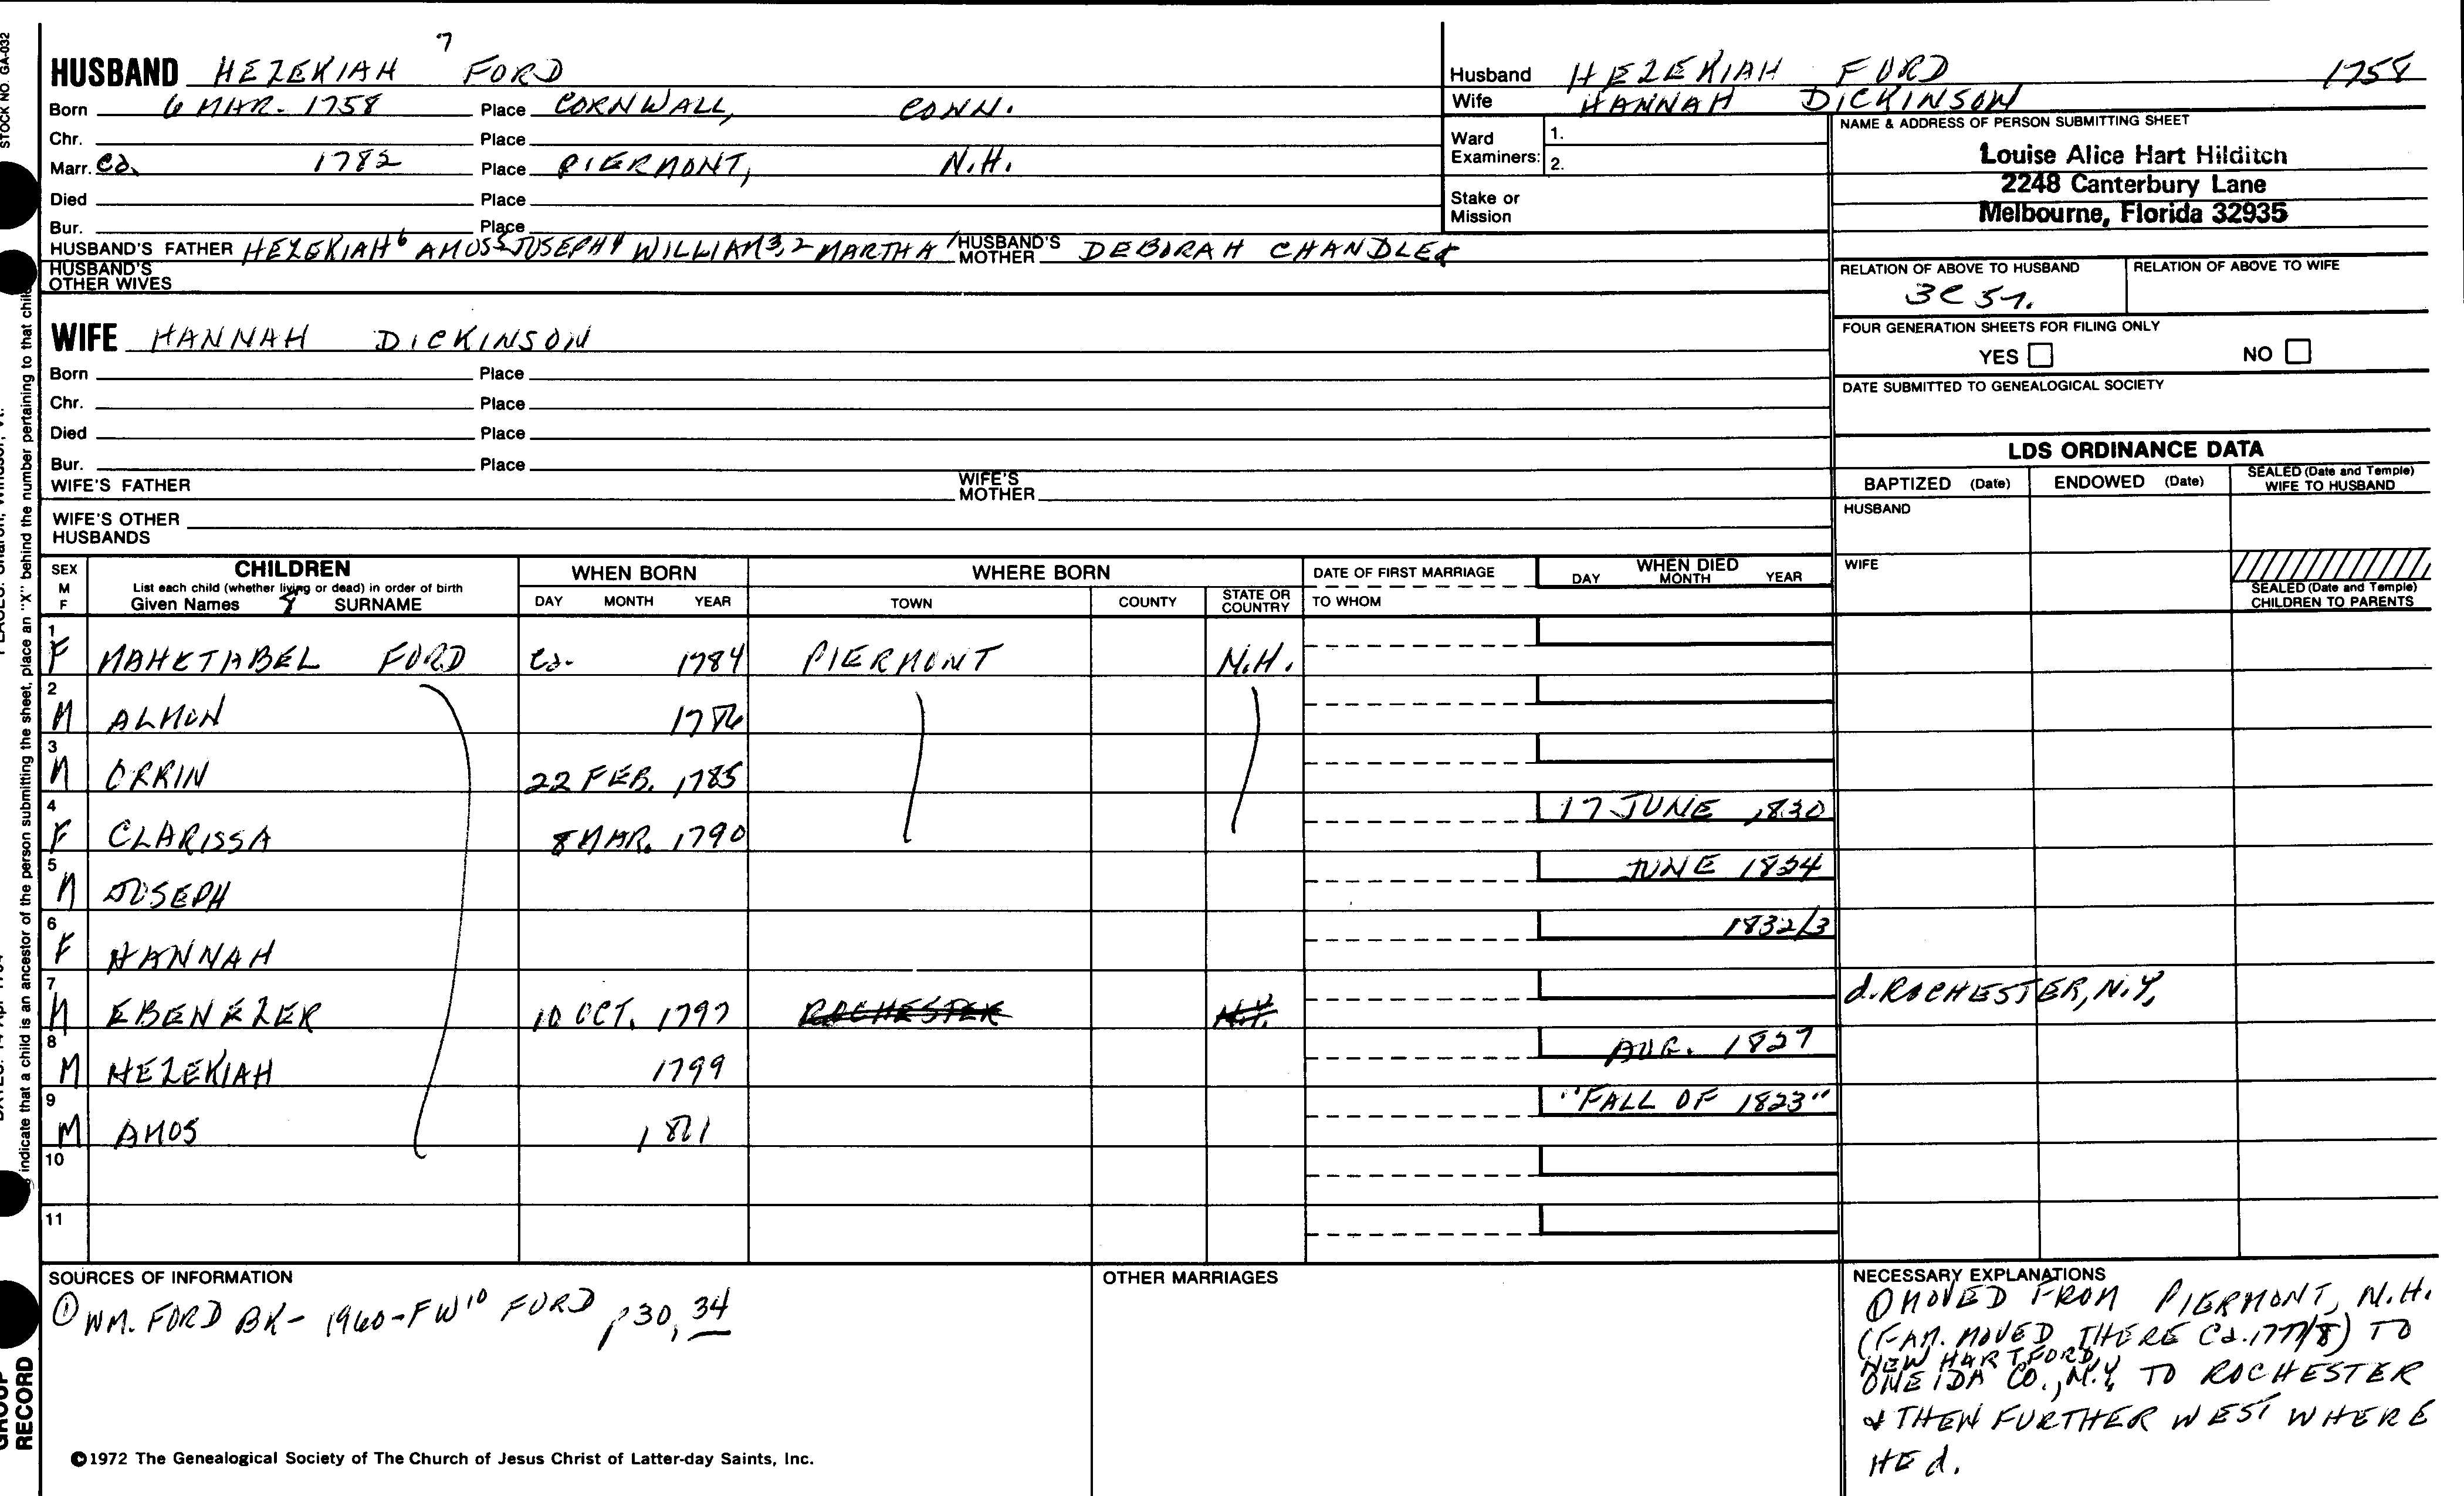 7
HUSBAND HEZEKIAH FORD
Born 6 MAR. 1758 Place CORNWALL, CONN.
Chr. Place
Marr. Ca. 1782 Place PIERMONT, N.H.
Died Place
Bur. Place
HUSBAND'S FATHER HEZEKIAH6 AMOS5 JOSEPH4 WILLIAM3,2 MARTHA1 HUSBAND'S MOTHER DEBORAH CHANDLER
HUSBAND'S
OTHER WIVES
WIFE HANNAH DICKINSON
Born Place
Chr. Place
Died Place
Bur. Place
WIFE'S FATHER WIFE'S MOTHER
WIFE'S OTHER
HUSBANDS
Husband HEZEKIAH FORD 1758
Wife HANNAH DICKINSON
Ward
Examiners: 1.
2.
Stake or
Mission
NAME & ADDRESS OF PERSON SUBMITTING SHEET
Louise Alice Hart Hilditch
2248 Canterbury Lane
Melbourne, Florida 32935
RELATION OF ABOVE TO HUSBAND RELATION OF ABOVE TO WIFE
3C 5r.
FOUR GENERATION SHEETS FOR FILING ONLY
YES NO
DATE SUBMITTED TO GENEALOGICAL SOCIETY
LDS ORDINANCE DATA
BAPTIZED (Date) ENDOWED (Date) SEALED (Date and Temple) WIFE TO HUSBAND
HUSBAND
WIFE
SEALED (Date and Temple)
CHILDREN TO PARENTS
SEX M F CHILDREN WHEN BORN WHERE BORN DATE OF FIRST MARRIAGE WHEN DIED
List each child (whether living or dead) in order of birth
Given Names 8 SURNAME DAY MONTH YEAR TOWN COUNTY STATE OR COUNTRY TO WHOM DAY MONTH YEAR
1 F MAHETABEL FORD Ca. 1784 PIERMONT N.H.
2 M ALMON 1786
3 M ORRIN 22 FEB. 1785
4 F CLARISSA 8 MAR. 1790 17 JUNE 1830
5 M JOSEPH JUNE 1834
6 F HANNAH 1832/3
7 M EBENEZER 10 OCT. 1797 ROCHESTER N.Y. d. ROCHESTER, N.Y.
8 M HEZEKIAH 1799 AUG. 1827
9 M AMOS 1801 "FALL OF 1823"
10
11
SOURCES OF INFORMATION
① WM. FORD BK - 1960 - FW10 FORD p30, 34
OTHER MARRIAGES
NECESSARY EXPLANATIONS
① MOVED FROM PIERMONT, N.H.
(FAM. MOVED THERE Ca. 1777/8) TO
NEW HARTFORD,
ONEIDA CO., N.Y. TO ROCHESTER
& THEN FURTHER WEST WHERE
HE d.
©1972 The Genealogical Society of The Church of Jesus Christ of Latter-day Saints, Inc.
STOCK NO. GA-032
indicate that a child is an ancestor of the person submitting the sheet, place an "X" behind the number pertaining to that child
GROUP
RECORD